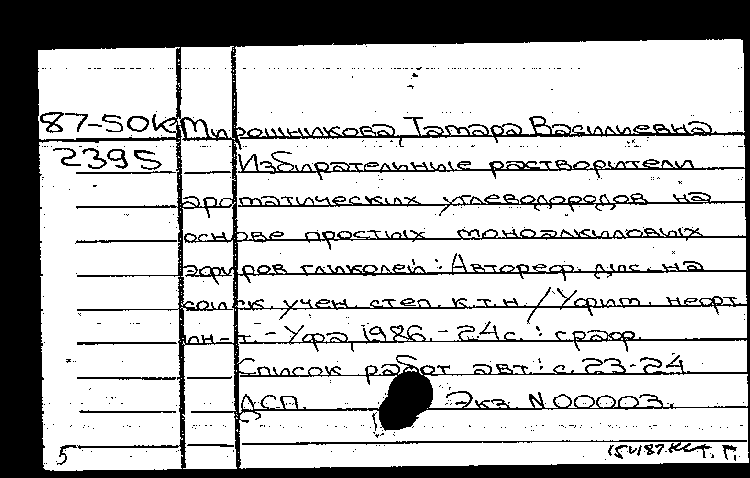 87-50K Мирошникова, Тамара Василиевна
2395 Избирательные растворители
ароматических углеводородов на
основе простых моноалкиловых
эфиров гликолей : Автореф. дис. на
соиск. учен. степ. к.т.н. / Уфим. нефт.
ин-т. - Уфа, 1986. - 24с. : граф.
Список работ авт.: с. 23-24.
ДСП. Экз. N 00003.
5